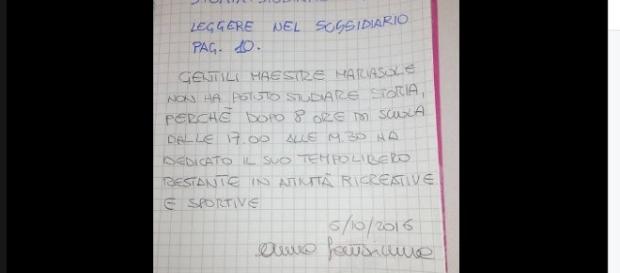 LEGGERE NEL SUSSIDIARIO
PAG. 10.
GENTILI MAESTRE MARIASOLE
NON HA POTUTO STUDIARE STORIA,
PERCHÉ DOPO 8 ORE DI SCUOLA
DALLE 17.00 ALLE 19.30 HA
DEDICATO IL SUO TEMPO LIBERO
RESTANTE IN ATTIVITÀ RICREATIVE
E SPORTIVE
5/10/2016